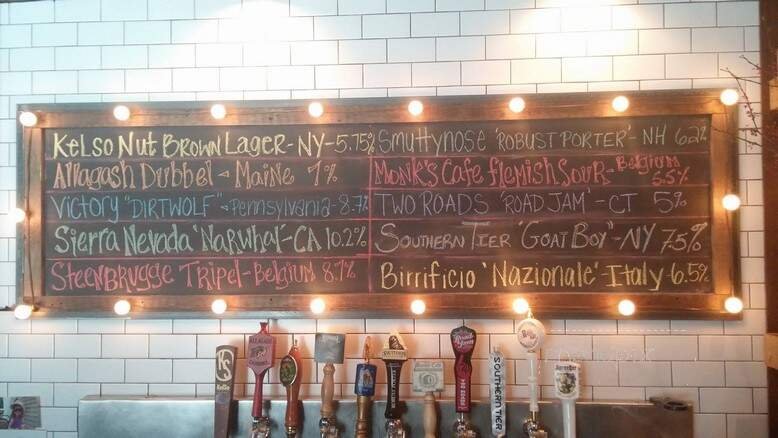 Kelso Nut Brown Lager-NY-5.75%
Allagash Dubbel - Maine 7%
Victory "DIRTWOLF" - Pennsylvania - 8.7%
Sierra Nevada 'Narwhal'-CA 10.2%
Steenbrugge Tripel-Belgium 8.7%
Smuttynose 'ROBUST PORTER'- NH 6.2%
Monk's Cafe Flemish Sour-Belgium 5.5%
TWO ROADS 'ROAD JAM' - CT 5%
Southern Tier 'Goat Boy' - NY 7.5%
Birrificio 'Nazionale' Italy - 6.5%
SOUTHERN TIER